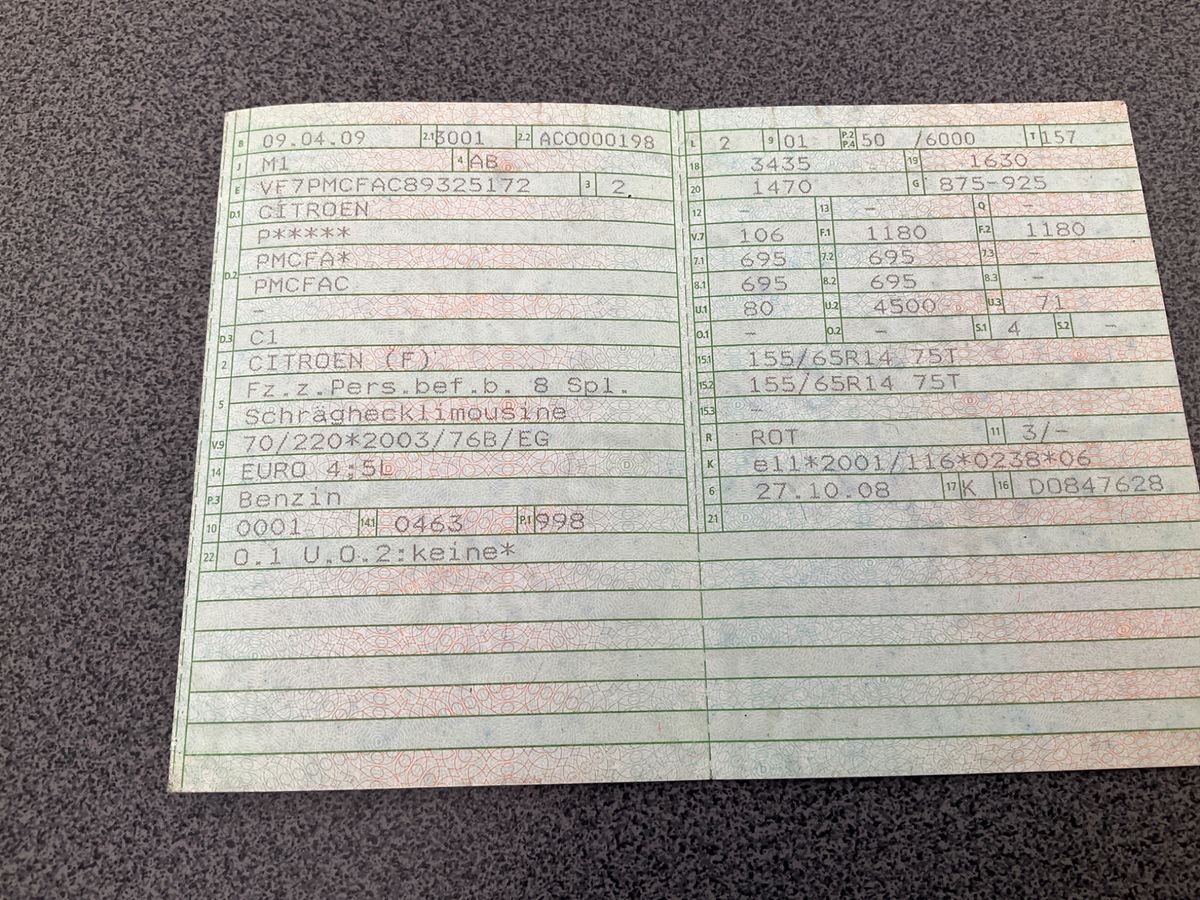 B 09.04.09 2.1 3001 2.2 ACO000198
J M1 4 AB
E VF7PMCFAC89325172 3 2
D.1 CITROEN
P*****
D.2 PMCFA*
PMCFAC
-
D.3 C1
2 CITROEN (F)
5 Fz.z.Pers.bef.b. 8 Spl.
Schräghecklimousine
V.9 70/220*2003/76B/EG
14 EURO 4;5L
P.3 Benzin
10 0001 14.1 0463 P.1 998
22 O.1 U.O.2:keine*
L 2 9 01 P.2 P.4 50 /6000 T 157
18 3435 19 1630
20 1470 G 875-925
12 - 13 - Q -
V.7 106 F.1 1180 F.2 1180
7.1 695 7.2 695 7.3 -
8.1 695 8.2 695 8.3 -
U.1 80 U.2 4500 U.3 71
O.1 - O.2 - S.1 4 S.2 -
15.1 155/65R14 75T
15.2 155/65R14 75T
15.3 -
R ROT 11 3/-
K e11*2001/116*0238*06
6 27.10.08 17 K 16 DO847628
21